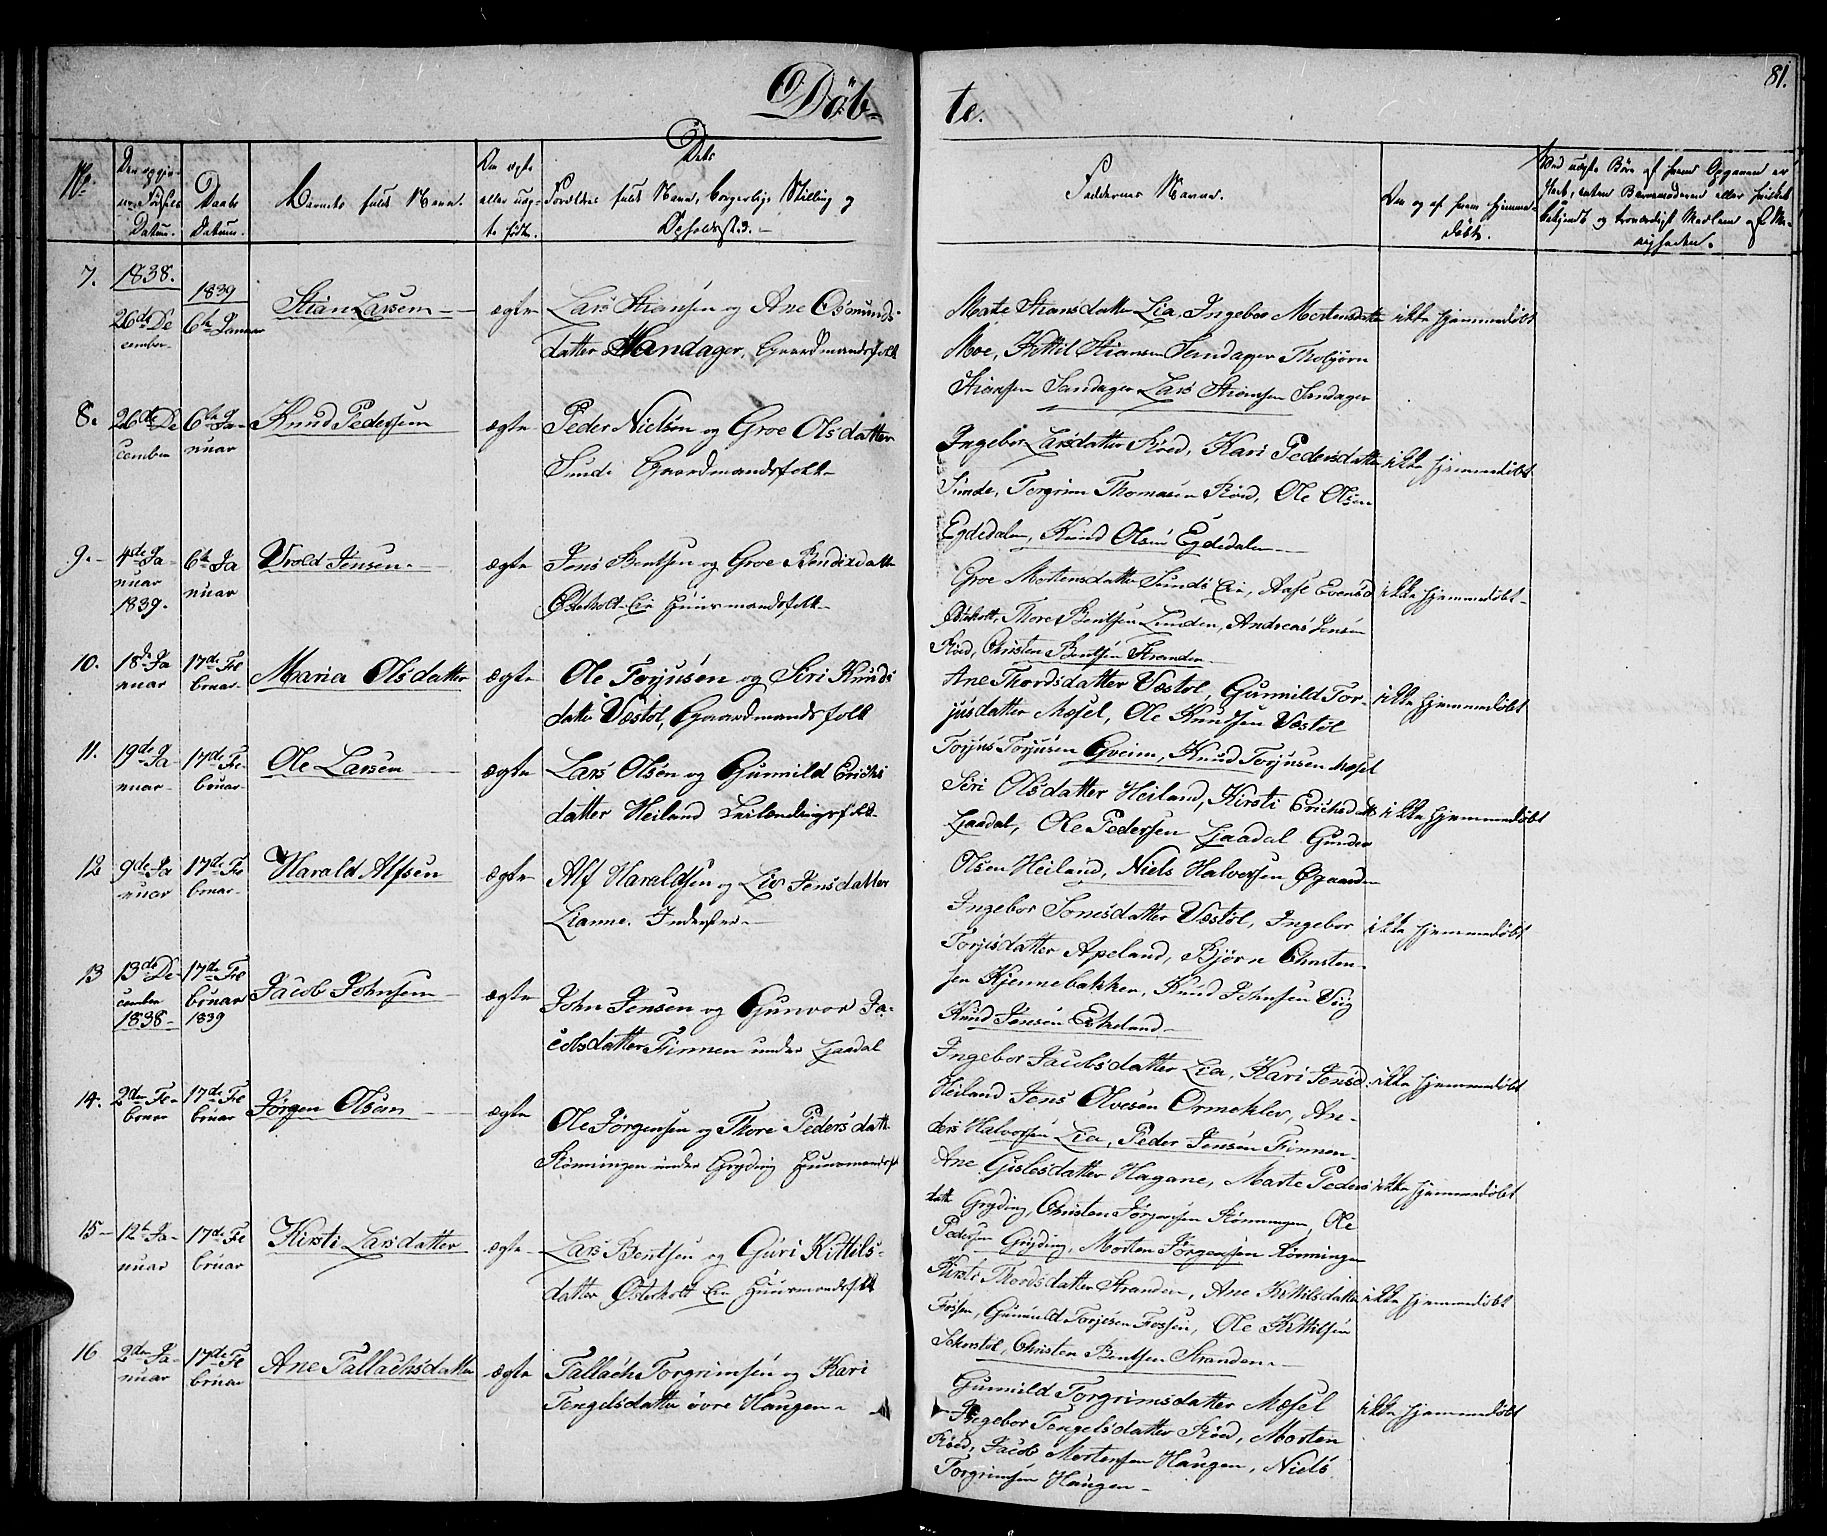 Döb-
te.
81.
No.
Den opgiv-
ne Fødsels
Datum.
Daabs
Datum.
Barnets fulde Navn.
Om ægte
eller uæg-
te født.
Dets
Forældres fulde Navn, borgerlige Stilling og
Opholdssted.
Faddernes Navne.
Om og af hvem hjemme-
døbt.
7. 1838. 1839
26de De
cember
6te Januar
Stian Larsen
ægte
Lars Stiansen og Ane Osmunds-
datter Sandager, Gaardmandsfolk
Marte Stiansdatter Lia, Ingebor Mortensdatter
Moe, Kittil Stiansen Sandager Thobjörn
Stiansen Sandager Lars Stiansen Sandager
ikke hjemmedöbt
8. 26de De
cember
6te Ja-
nuar
Knud Pedersen
ægte
Peder Nielsen og Groe Olsdatter
Sundi Gaardmandsfolk
Ingebor Larsdatter Röed, Kari Pedersdatter
Sunde, Torgrim Thomasen Röed, Ole Olsen
Egdedalen, Knud Olsen Egdedalen
ikke hjemmedöbt
9. 4de Ja-
nuar
1839.
6te Ja
nuar
Wrold Jensen
ægte
Jens Bentsen og Groe Bendixdatter
Österholt Eie Huusmandsfolk
Groe Mortensdatter Sunds Eie, Aase Evensd
Österholt, Thore Bentsen Lunden, Andreas Jensen
Röed, Christen Bentsen Stranden
ikke hjemmedöbt
10. 18de Ja
nuar
17de Fe
bruar
Maria Olsdatter
ægte
Ole Torjusen og Siri Knuds
datter Væstöl, Gaardmandsfolk
Ane Thordsdatter Væstöl, Gunnild Tor-
jusdatter Mæsel, Ole Knudsen Væstöl
Torjus Torjusen Gveim, Knud Torjusen Mæsel
ikke hjemmedöbt
11. 19de Ja-
nuar
17de Fe-
bruar
Ole Larsen
ægte
Lars Olsen og Gunnild Erichs
datter Heiland Leilændingsfolk
Siri Olsdatter Heiland, Kirsti Erichsdatt
Ljaadal, Ole Pedersen Ljaadal Gunder
Olsen Heiland, Niels Halvorsen Øgaarden
ikke hjemmedöbt
12 9de Ja
nuar
17de Fe
bruar
Harald Alfsen
ægte
Alf Haraldsen og Liv Jensdatter
Lianne. Inderster
Ingebor Jonesdatter Væstöl, Ingebor
Torjusdatter Apeland, Björn Christen-
sen Kjennebakken, Knud Johnsen Vöig
Knud Jensen Eskeland
ikke hjemmedöbt
13 13de De-
cember
1838
17de Fe
bruar
1839
Jacob Johnsen
ægte
John Jensen og Gunvor Ja-
cobsdatter Finnen under Ljaadal
Ingebor Jacobsdatter Lia, Kari Jensd.
Heiland Jens Olvesen Ormeklev, An-
ders Halvorsen Lia, Peder Jensen Finnen
ikke hjemmedöbt
14. 2den Fe-
bruar
17de Fe
bruar
Jörgen Olsen
ægte
Ole Jörgensen og Thore Pedersdatt.
Rönningen under Gryding Huusmandsf
Ane Gislesdatter Hagane, Marte Peders
datt Gryding, Christen Jörgensen Rönningen, Ole
Pedersen Gryding, Morten Jörgensen Rönningen
ikke hjemmedöbt
15 12te Ja-
nuar
17de Fe
bruar
Kirsti Larsdatter
ægte
Lars Bentsen og Guri Kittels-
datter Österholt Eie Huusmandsfolk
Kirsti Thordsdatter Stranden, Ane Kittilsdatter
Fossen, Gunnuld Torjesen Fossen, Ole Kittilsen
Sokerstöl, Christen Bentsen Stranden
ikke hjemmedöbt
16 2den Ja-
nuar
17de Fe
bruar
Ane Tallachsdatter
ægte
Tallach Torgrimsen og Kari
Tengelsdatter övre Haugen
Gunnild Torgrimsdatter Mæsel
Ingebor Tengelsdatter Röed, Morten
Röed, Jacob Mortensen Haugen, Niels
Torgrimsen Haugen
ikke hjemmedöbt